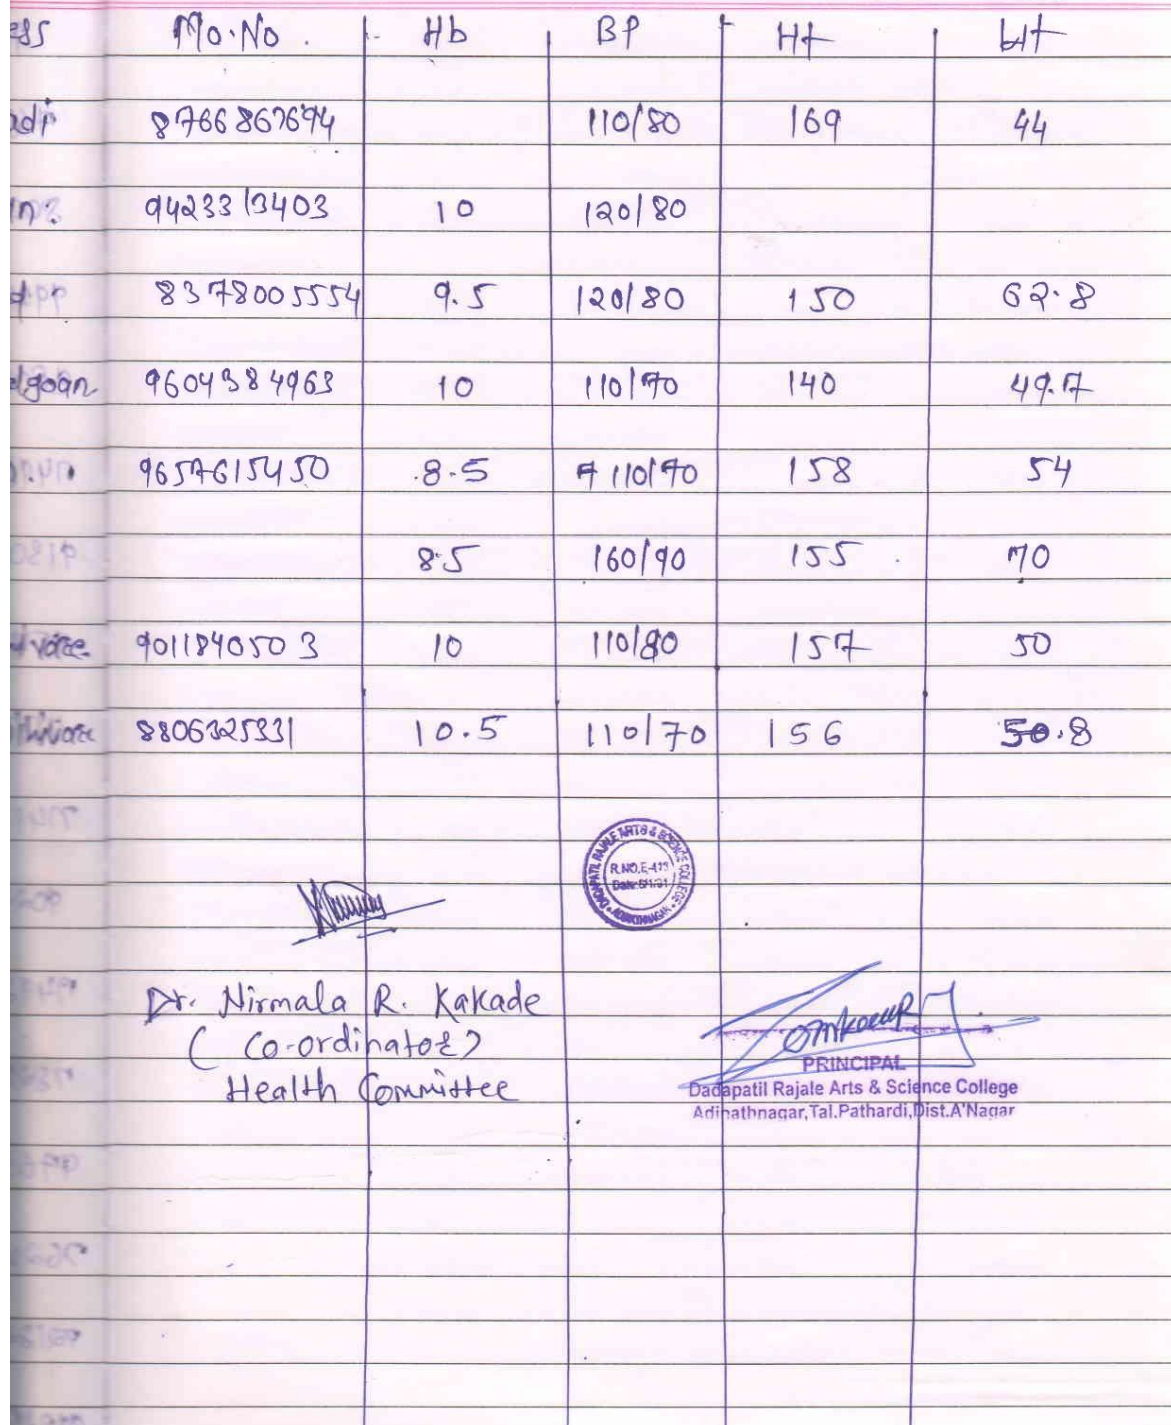 ess Mo.No. Hb BP Ht Wt
adi 8766867694 110/80 169 44
9423313403 10 120/80
8378005554 9.5 120/80 150 62.8
elgoan 9604384963 10 110/70 140 49.7
9657615450 8.5 110/70 158 54
8.5 160/90 155 70
9011840503 10 110/80 157 50
8806325331 10.5 110/70 156 50.8
DADAPATIL RAJALE ARTS & SCIENCE COLLEGE
R.NO.E-413
ADINATHNAGAR
Dr. Nirmala R. Kakade
(Co-ordinator)
Health Committee
PRINCIPAL
Dadapatil Rajale Arts & Science College
Adinathnagar,Tal.Pathardi,Dist.A'Nagar